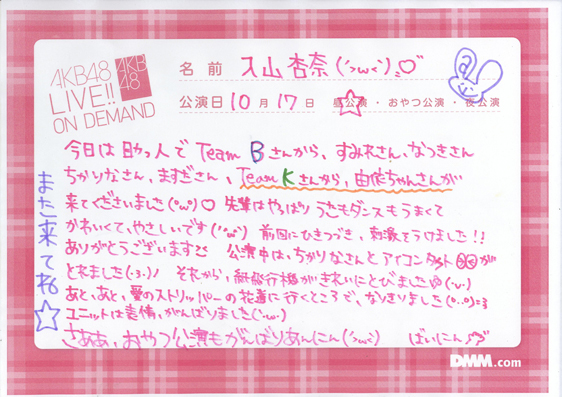 AKB48
LIVE!!
ON DEMAND
AKB
48
名前 入山杏奈(´つω<`)♡
公演日 10月17日 昼公演・おやつ公演・夜公演
今日は助っ人で Team Bさんから、すみれさん、なつきさん
ちかりなさん、ますださん、Team Kさんから、由依ちゃんさんが
来てくださいました(°ω°)♡ 先輩はやっぱり うたもダンスもうまくて
かわいくて、やさしいです(''ω'') 前回にひきつづき、刺激をうけました!!
ありがとうございます 公演中は、ちかりなさんとアイコンタクトが
とれました(・3・)ノ それから、紙飛行機がきれいにとびました(・v・)
あと、あと、愛のストリッパーの花道に行くところで、なりきりました(°..°)=3
ユニットは表情、がんばりました(´・ω・`)
さああ、おやつ公演もがんばりあんにん(´つω<`) ばいにん
また来てね☆
DMM.com